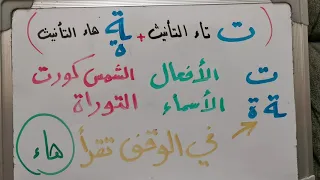 ( ت تاء التأنيث + ة هاء التأنيث )
ت الأفعال الشمس كورت
ة ة الأسماء التوراة
في الوقف تقرأ هاء